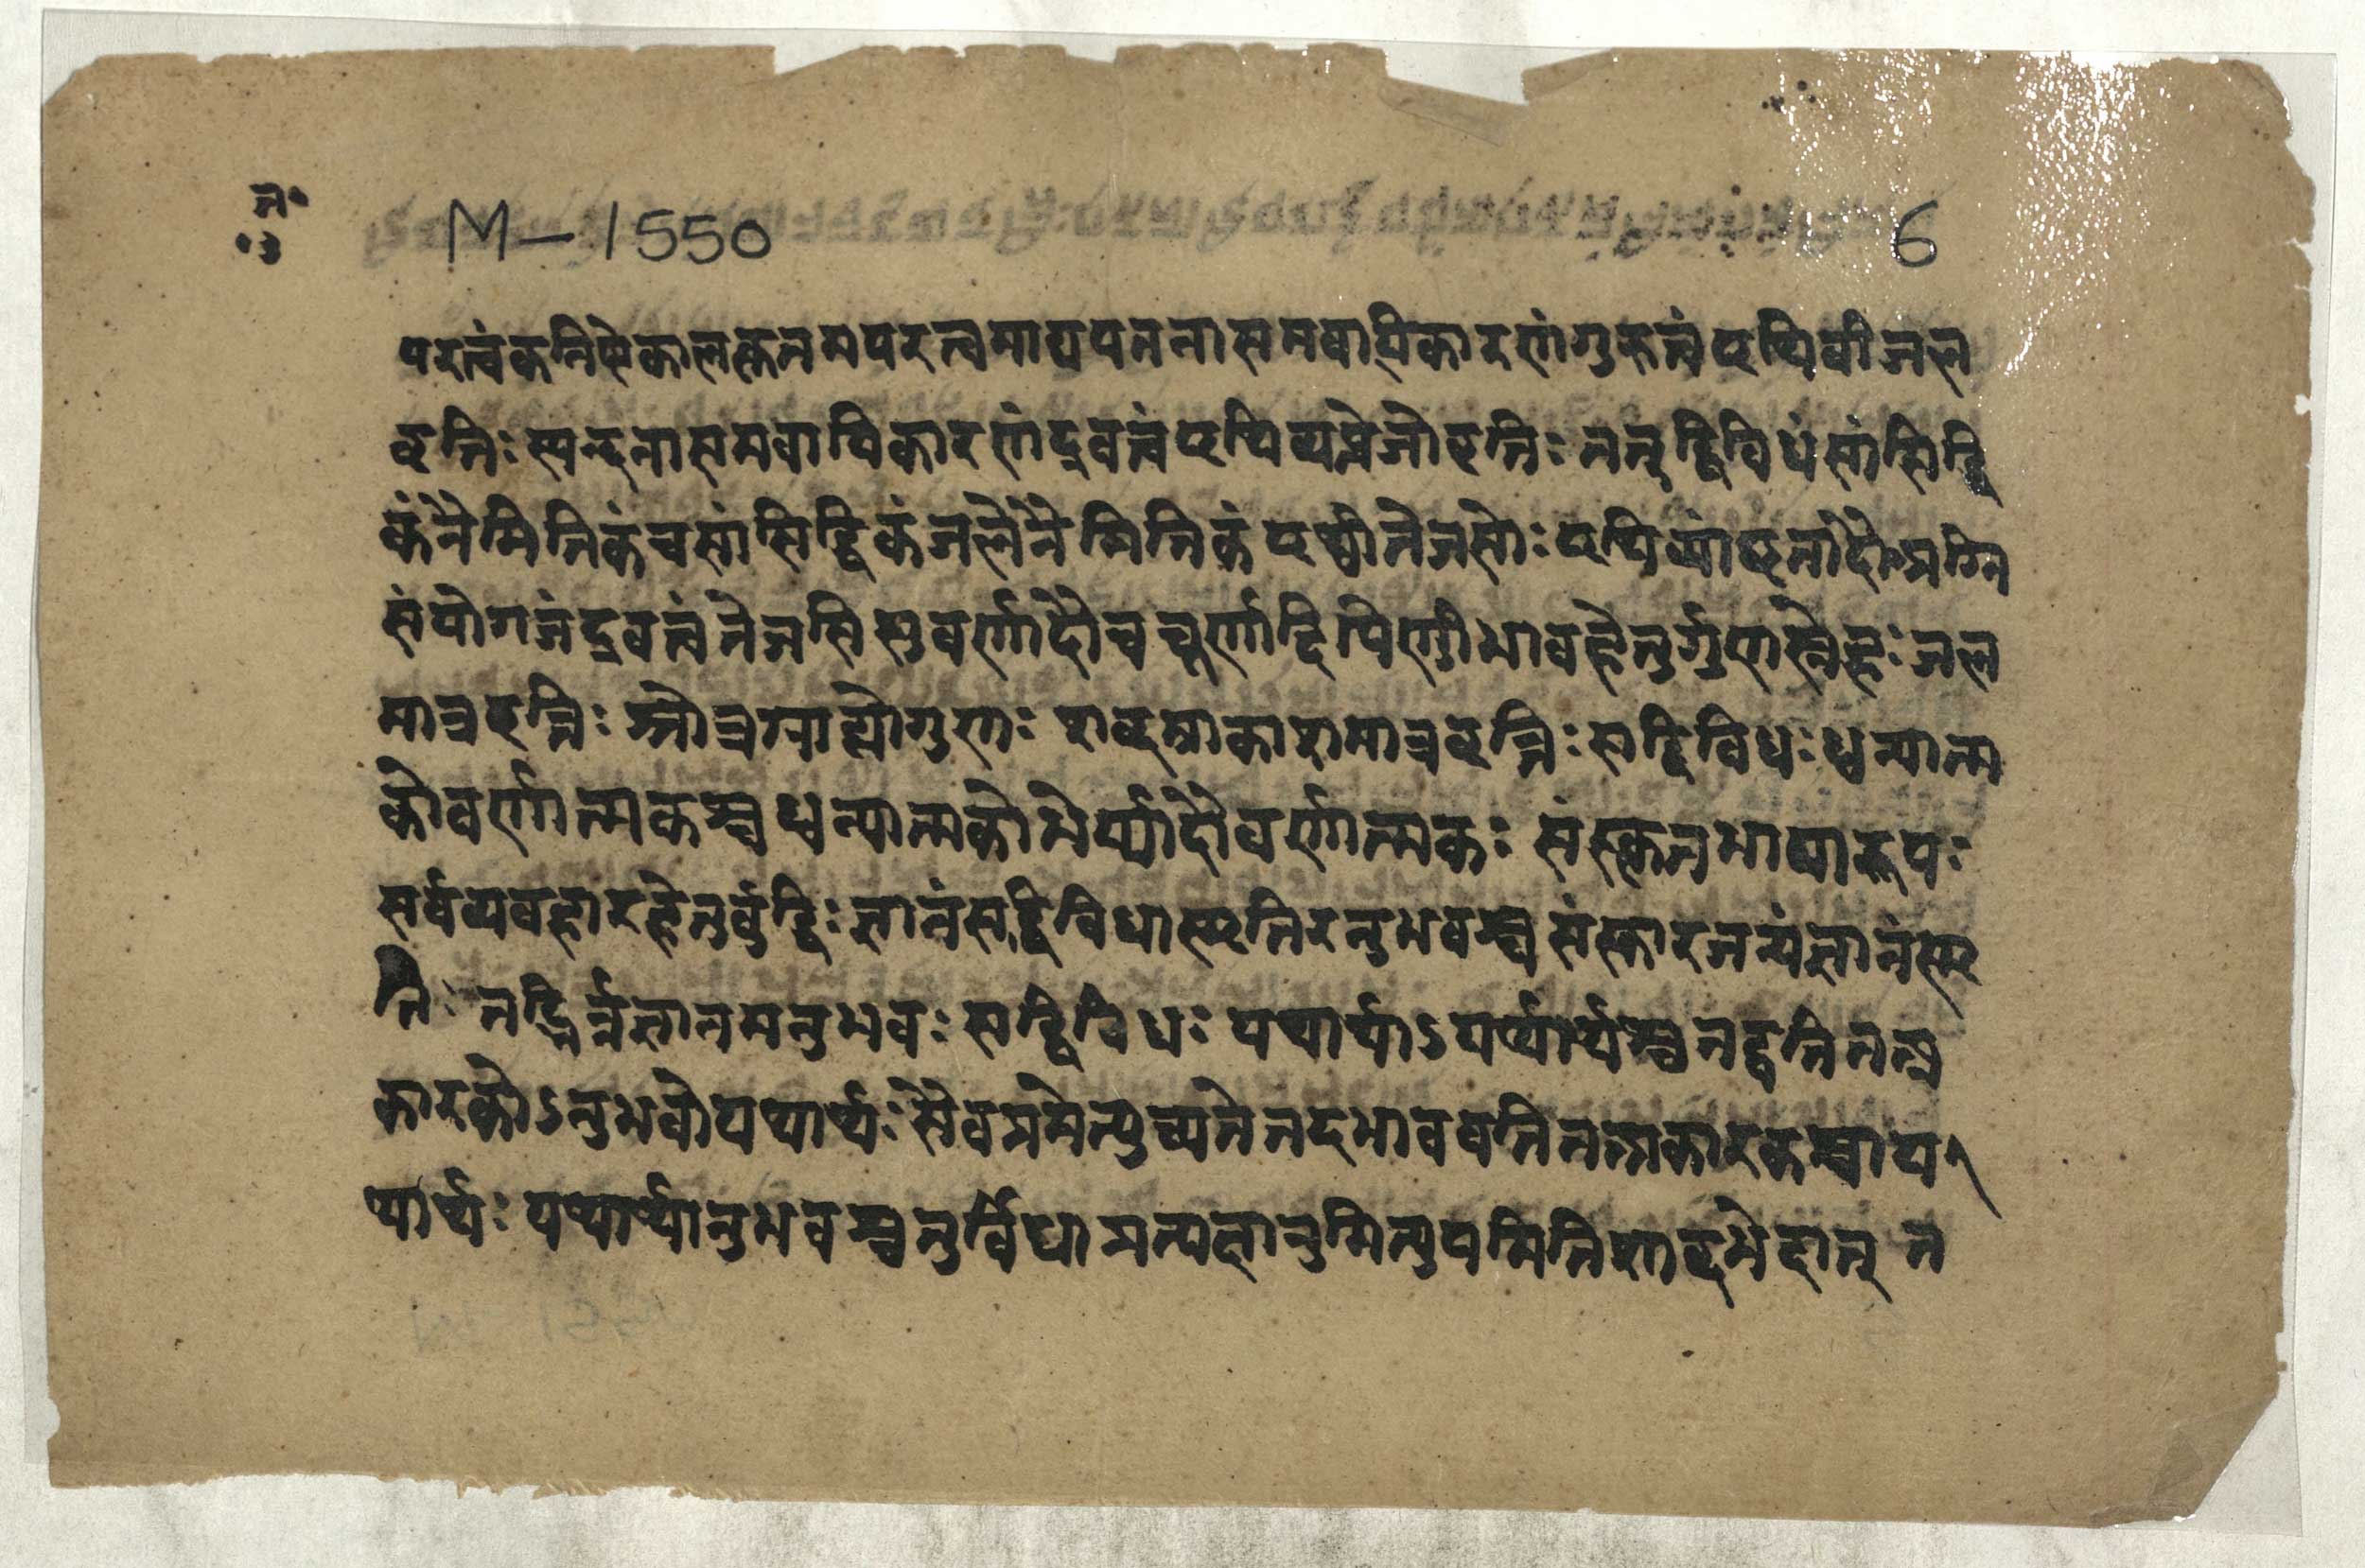 त॰
॰३
M-1550
6
परत्वंकनिष्ठेकालकृतमपरत्वमाद्यपतनासमवायिकारणंगुरुत्वंपृथिवीजल
वृत्तिः स्यन्दनासमवायिकारणंद्रवत्वंपृथिव्यप्तेजोवृत्तिः तत्द्विविधंसांसिद्धि
कंनैमित्तिकंचसांसिद्धिकंजलेनैमित्तिकंपृथ्वीतेजसोः पृथिव्यांघृतादौअग्नि
संयोगजंद्रवत्वंतेजसिसुवर्णादौचचूर्णादिपिण्डीभावहेतुर्गुणस्नेहः जल
मात्रवृत्तिः श्रोत्रग्राह्योगुणः शब्दआकाशमात्रवृत्तिः सद्विविधः ध्वन्यात्म
कोवर्णात्मकश्चध्वन्यात्मकोभेर्य्यादौवर्णात्मकः संस्कृतभाषारूपः
सर्वव्यवहारहेतुर्बुद्धिः ज्ञानंसद्विविधास्मृतिरनुभवश्चसंस्कारजन्यंज्ञानंस्मृ
तिः तद्भिर्न्नज्ञानमनुभवः सद्विविधः यथार्थाऽयर्थार्थश्चतद्वतितत्प्र
कारकोऽनुभवोयथार्थः सैवप्रमेत्युच्यतेतदभाववतितत्प्रकारकश्चाय
थार्थः यथार्थानुभवश्चतुर्विधाप्रत्यक्षानुमित्युपमितिशाब्दभेदात् त